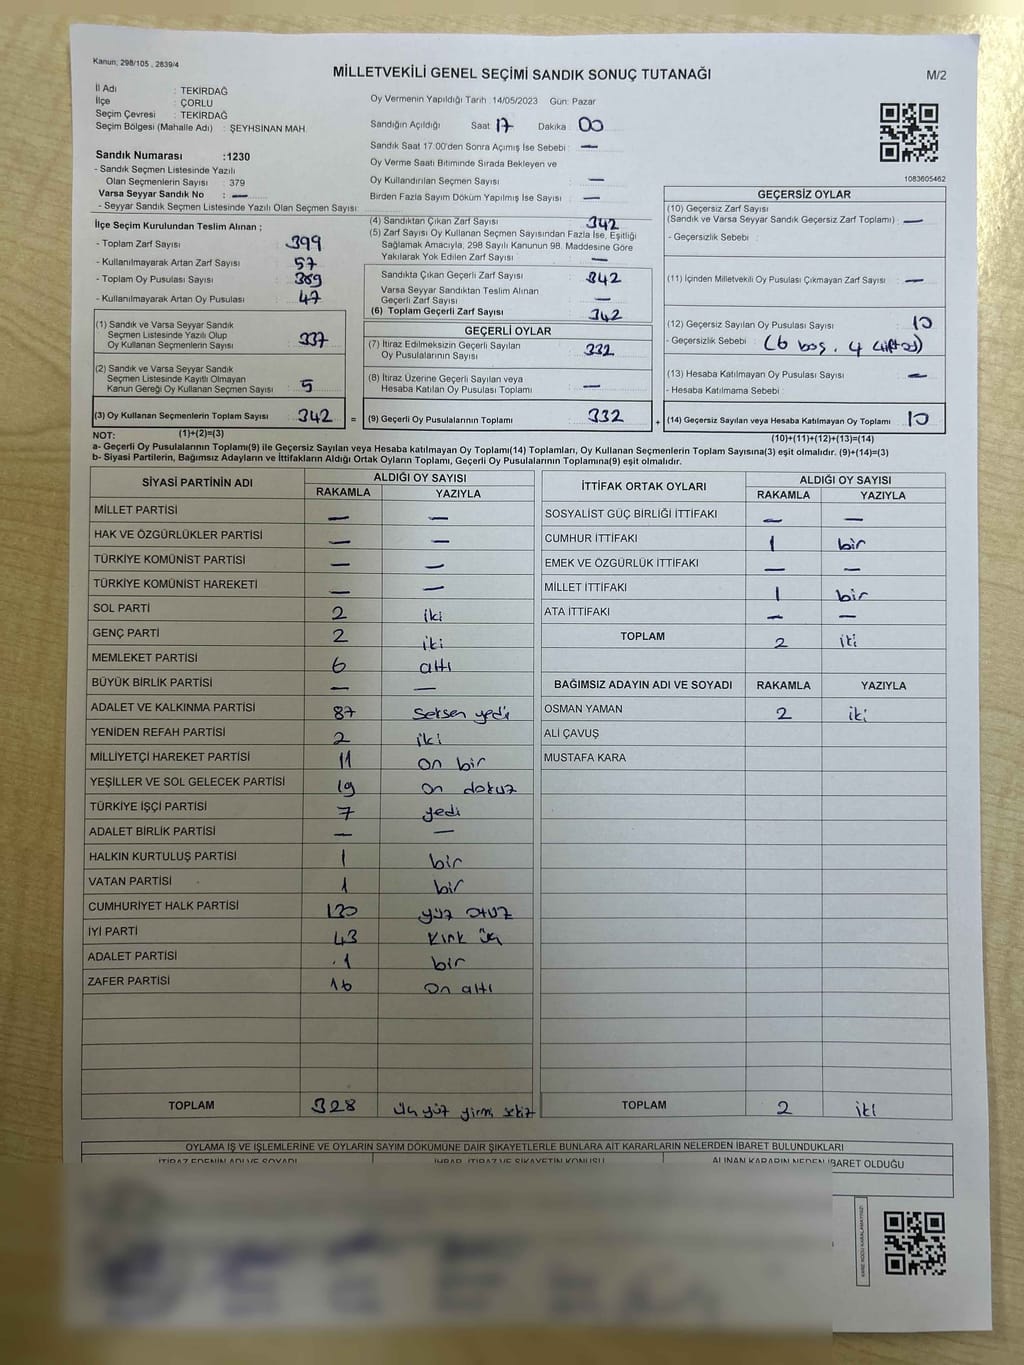 Kanun; 298/105 , 2839/4
MİLLETVEKİLİ GENEL SEÇİMİ SANDIK SONUÇ TUTANAĞI
M/2
İl Adı : TEKİRDAĞ
İlçe : ÇORLU
Seçim Çevresi : TEKİRDAĞ
Seçim Bölgesi (Mahalle Adı) : ŞEYHSİNAN MAH.
Sandık Numarası :1230
- Sandık Seçmen Listesinde Yazılı
Olan Seçmenlerin Sayısı : 379
Varsa Seyyar Sandık No : —
- Seyyar Sandık Seçmen Listesinde Yazılı Olan Seçmen Sayısı:
Oy Vermenin Yapıldığı Tarih :14/05/2023 Gün: Pazar
Sandığın Açıldığı Saat 17 Dakika 00
Sandık Saat 17:00'den Sonra Açımış İse Sebebi : —
Oy Verme Saati Bitiminde Sırada Bekleyen ve
Oy Kullandırılan Seçmen Sayısı : —
Birden Fazla Sayım Döküm Yapılmış İse Sayısı : —
1083605462
İlçe Seçim Kurulundan Teslim Alınan ;
- Toplam Zarf Sayısı : 399
- Kullanılmayarak Artan Zarf Sayısı : 57
- Toplam Oy Pusulası Sayısı : 389
- Kullanılmayarak Artan Oy Pusulası : 47
(1) Sandık ve Varsa Seyyar Sandık
Seçmen Listesinde Yazılı Olup
Oy Kullanan Seçmenlerin Sayısı : 337
(2) Sandık ve Varsa Seyyar Sandık
Seçmen Listesinde Kayıtlı Olmayan
Kanun Gereği Oy Kullanan Seçmen Sayısı : 5
(3) Oy Kullanan Seçmenlerin Toplam Sayısı : 342 =
(1)+(2)=(3)
(4) Sandıktan Çıkan Zarf Sayısı : 342
(5) Zarf Sayısı Oy Kullanan Seçmen Sayısından Fazla İse, Eşitliği
Sağlamak Amacıyla, 298 Sayılı Kanunun 98. Maddesine Göre
Yakılarak Yok Edilen Zarf Sayısı : —
Sandıkta Çıkan Geçerli Zarf Sayısı : 342
Varsa Seyyar Sandıktan Teslim Alınan
Geçerli Zarf Sayısı : —
(6) Toplam Geçerli Zarf Sayısı : 342
GEÇERLİ OYLAR
(7) İtiraz Edilmeksizin Geçerli Sayılan
Oy Pusulalarının Sayısı : 332
(8) İtiraz Üzerine Geçerli Sayılan veya
Hesaba Katılan Oy Pusulası Toplamı : —
(9) Geçerli Oy Pusulalarının Toplamı : 332 +
GEÇERSİZ OYLAR
(10) Geçersiz Zarf Sayısı
(Sandık ve Varsa Seyyar Sandık Geçersiz Zarf Toplamı) : —
- Geçersizlik Sebebi :
(11) İçinden Milletvekili Oy Pusulası Çıkmayan Zarf Sayısı : —
(12) Geçersiz Sayılan Oy Pusulası Sayısı : 10
- Geçersizlik Sebebi : (6 boş, 4 çift oy)
(13) Hesaba Katılmayan Oy Pusulası Sayısı : —
- Hesaba Katılmama Sebebi :
(14) Geçersiz Sayılan veya Hesaba Katılmayan Oy Toplamı : 10
(10)+(11)+(12)+(13)=(14)
NOT:
a- Geçerli Oy Pusulalarının Toplamı(9) ile Geçersiz Sayılan veya Hesaba katılmayan Oy Toplamı(14) Toplamları, Oy Kullanan Seçmenlerin Toplam Sayısına(3) eşit olmalıdır. (9)+(14)=(3)
b- Siyasi Partilerin, Bağımsız Adayların ve İttifakların Aldığı Ortak Oyların Toplamı, Geçerli Oy Pusulalarının Toplamına(9) eşit olmalıdır.
SİYASİ PARTİNİN ADI ALDIĞI OY SAYISI
RAKAMLA YAZIYLA
MİLLET PARTİSİ — —
HAK VE ÖZGÜRLÜKLER PARTİSİ — —
TÜRKİYE KOMÜNİST PARTİSİ — —
TÜRKİYE KOMÜNİST HAREKETİ — —
SOL PARTİ 2 iki
GENÇ PARTİ 2 iki
MEMLEKET PARTİSİ 6 altı
BÜYÜK BİRLİK PARTİSİ — —
ADALET VE KALKINMA PARTİSİ 87 Seksen yedi
YENİDEN REFAH PARTİSİ 2 iki
MİLLİYETÇİ HAREKET PARTİSİ 11 on bir
YEŞİLLER VE SOL GELECEK PARTİSİ 19 on dokuz
TÜRKİYE İŞÇİ PARTİSİ 7 yedi
ADALET BİRLİK PARTİSİ — —
HALKIN KURTULUŞ PARTİSİ 1 bir
VATAN PARTİSİ 1 bir
CUMHURİYET HALK PARTİSİ 130 yüz otuz
İYİ PARTİ 43 Kırk üç
ADALET PARTİSİ 1 bir
ZAFER PARTİSİ 16 On altı
TOPLAM 328 üç yüz yirmi sekiz
İTTİFAK ORTAK OYLARI ALDIĞI OY SAYISI
RAKAMLA YAZIYLA
SOSYALİST GÜÇ BİRLİĞİ İTTİFAKI — —
CUMHUR İTTİFAKI 1 bir
EMEK VE ÖZGÜRLÜK İTTİFAKI — —
MİLLET İTTİFAKI 1 bir
ATA İTTİFAKI — —
TOPLAM 2 iki
BAĞIMSIZ ADAYIN ADI VE SOYADI RAKAMLA YAZIYLA
OSMAN YAMAN 2 iki
ALİ ÇAVUŞ
MUSTAFA KARA
TOPLAM 2 iki
OYLAMA İŞ VE İŞLEMLERİNE VE OYLARIN SAYIM DÖKÜMÜNE DAİR ŞİKAYETLERLE BUNLARA AİT KARARLARIN NELERDEN İBARET BULUNDUKLARI
İTİRAZ EDENİN ADI VE SOYADI İHBAR, İTİRAZ VE ŞİKAYETİN KONUSU ALINAN KARARIN NEDEN İBARET OLDUĞU
KARE KODU KARALAMAYINIZ!